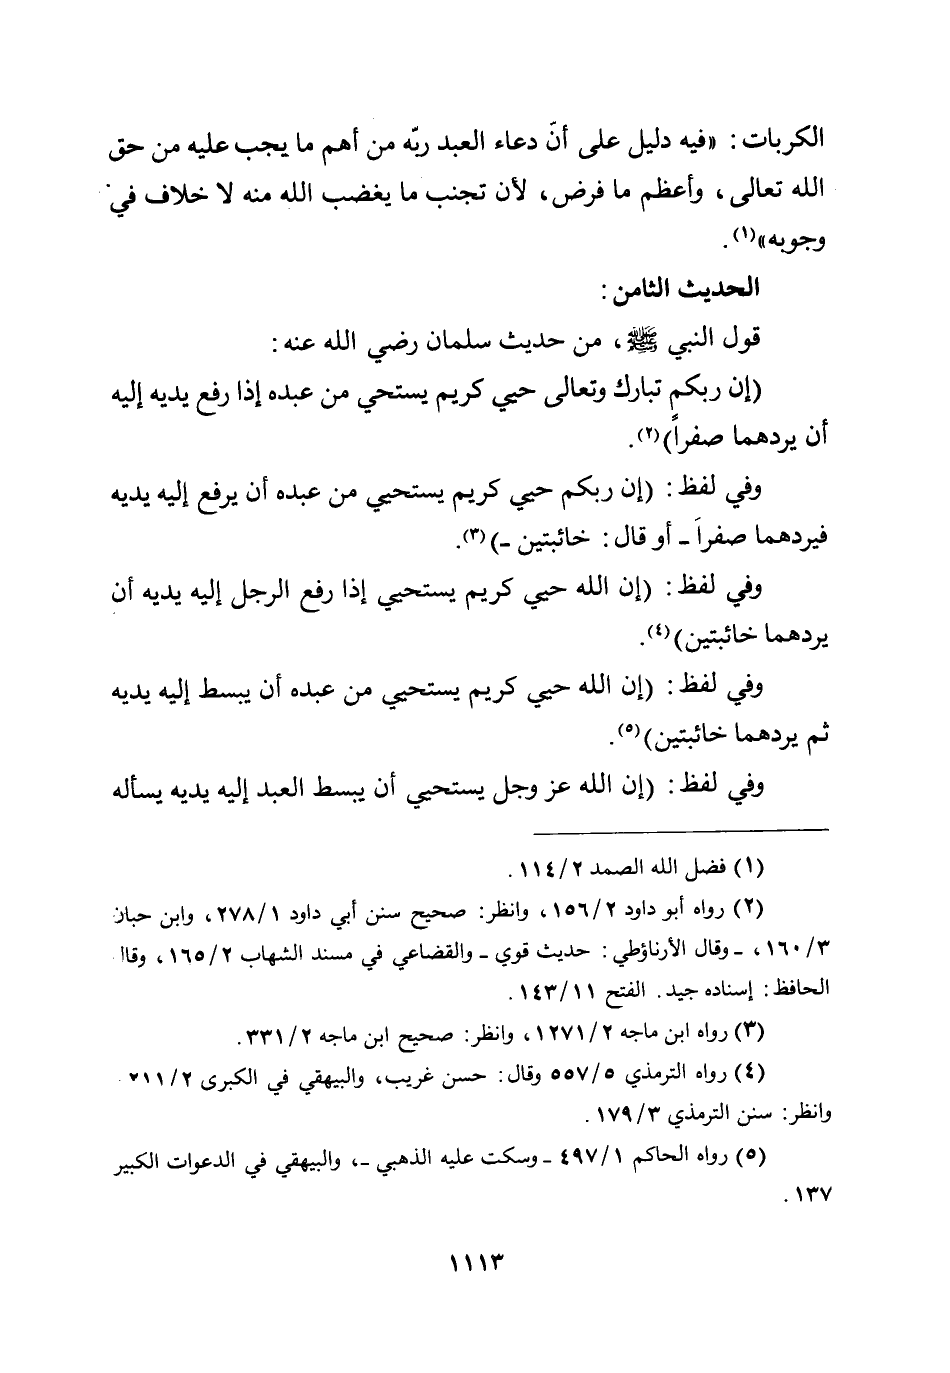 الكربات: «فيه دليل على أنّ دعاء العبد ربّه من أهم ما يجب عليه من حق
الله تعالى، وأعظم ما فرض، لأن تجنب ما يغضب الله منه لا خلاف في
وجوبه»(١).
الحديث الثامن:
قول النبي ﷺ، من حديث سلمان رضي الله عنه:
(إن ربكم تبارك وتعالى حيي كريم يستحي من عبده إذا رفع يديه إليه
أن يردهما صفراً)(٢).
وفي لفظ: (إن ربكم حيي كريم يستحيي من عبده أن يرفع إليه يديه
فيردهما صفراَ ـ أو قال: خائبتين ـ)(٣).
وفي لفظ: (إن الله حيي كريم يستحيي إذا رفع الرجل إليه يديه أن
يردهما خائبتين)(٤).
وفي لفظ: (إن الله حيي كريم يستحيي من عبده أن يبسط إليه يديه
ثم يردهما خائبتين)(٥).
وفي لفظ: (إن الله عز وجل يستحيي أن يبسط العبد إليه يديه يسأله
(١) فضل الله الصمد ١١٤/٢.
(٢) رواه أبو داود ١٥٦/٢، وانظر: صحيح سنن أبي داود ٢٧٨/١، وابن حبان
١٦٠/٣، ـ وقال الأرناؤطي: حديث قوي ـ والقضاعي في مسند الشهاب ١٦٥/٢، وقال
الحافظ: إسناده جيد. الفتح ١٤٣/١١.
(٣) رواه ابن ماجه ١٢٧١/٢، وانظر: صحيح ابن ماجه ٣٣١/٢.
(٤) رواه الترمذي ٥٥٧/٥ وقال: حسن غريب، والبيهقي في الكبرى
وانظر: سنن الترمذي ١٧٩/٣.
(٥) رواه الحاكم ٤٩٧/١ ـ وسكت عليه الذهبي ـ، والبيهقي في الدعوات الكبير
١٣٧.
١١١٣